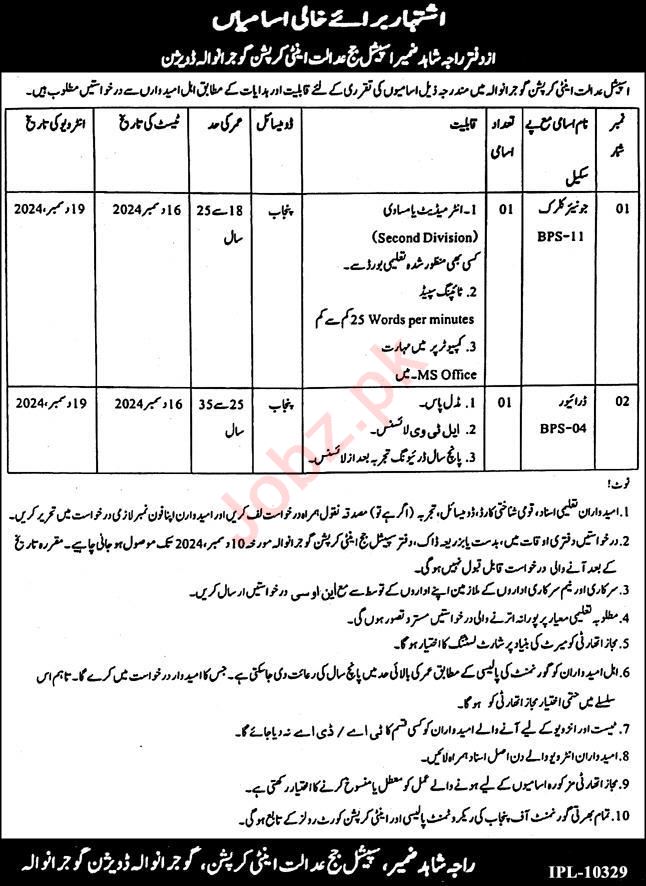 اشتہار برائے خالی اسامیاں
از دفتر راجہ شاہد ضمیر، اسپیشل جج عدالت اینٹی کرپشن گوجرانوالہ ڈویژن
اسپیشل عدالت اینٹی کرپشن گوجرانوالہ میں مندرجہ ذیل اسامیوں کی تقرری کے لئے قابلیت اور ہدایات کے مطابق اہل امیدواروں سے درخواستیں مطلوب ہیں۔
نمبر شمار
نام اسامی مع پے سکیل
تعداد اسامی
قابلیت
ڈومیسائل
عمر کی حد
ٹیسٹ کی تاریخ
انٹرویو کی تاریخ
01
جونیئر کلرک
BPS-11
01
1۔ انٹرمیڈیٹ یا مساوی
(Second Division)
کسی بھی منظور شدہ تعلیمی بورڈ سے۔
2. ٹائپنگ سپیڈ
25 Words per minutes کم سے کم
3. کمپیوٹر پر میں مہارت
MS Office۔ میں
پنجاب
18 سے 25 سال
16 دسمبر 2024
19 دسمبر، 2024
02
ڈرائیور
BPS-04
01
1. مڈل پاس۔
2. ایل ٹی وی لائسنس۔
3. پانچ سال ڈرئیونگ تجربہ بعد از لائسنس۔
پنجاب
25 سے 35 سال
16 دسمبر 2024
19 دسمبر، 2024
نوٹ!
1. امیدواران تعلیمی اسناد، قومی شناختی کارڈ، ڈومیسائل، تجربہ (اگر ہے تو) مصدقہ نقول ہمراہ درخواست لف کریں اور امیدوارن اپنا فون نمبر لازمی درخواست میں تحریر کریں۔
2. درخواستیں دفتری اوقات میں، بدست یا بذریعہ ڈاک، دفتر سپیشل جج اینٹی کرپشن گوجرانوالہ مورخہ 10 دسمبر، 2024 تک موصول ہو جانی چاہیے۔ مقررہ تاریخ
کے بعد آنے والی درخواست قابل قبول نہیں ہو گی۔
3. سرکاری اور نیم سرکاری اداروں کے ملازمین اپنے اداروں کے توسط سے مع این او سی درخواستیں ارسال کریں۔
4. مطلوبہ تعلیمی معیار پر پورا نہ اترنے والی درخواستیں مسترد تصور ہوں گی۔
5. مجاز اتھارٹی کو میرٹ کی بنیاد پر شارٹ لسٹنگ کا اختیار ہو گا۔
6. اہل امیدواران کو گورنمنٹ کی پالیسی کے مطابق عمر کی بالائی حد میں پانچ سال کی رعائت دی جا سکتی ہے۔ جس کا امیدوار درخواست میں کرے گا۔ تاہم اس
سلسلے میں حتمی اختیار مجاز اتھارٹی کو ہو گا۔
7. ٹیسٹ اور انٹرویو کے لیے آنے والے امیدواران کو کسی قسم کا ٹی اے / ڈی اے نہ دیا جائے گا۔
8. امیدواران انٹرویو والے دن اصل اسناد ہمراہ لائیں۔
9. مجاز اتھارٹی مزکورہ اسامیوں کے لیے ہونے والے عمل کو معطل یا منسوخ کرنے کا اختیار رکھتی ہے۔
10. تمام بھرتی گورنمنٹ آف پنجاب کی ریکروٹمنٹ پالیسی اور اینٹی کرپشن کورٹ رولز کے تابع ہو گی۔
راجہ شاہد ضمیر، سپیشل جج عدالت اینٹی کرپشن، گوجرانوالہ ڈویژن گوجرانوالہ
IPL-10329
Jobz.pk